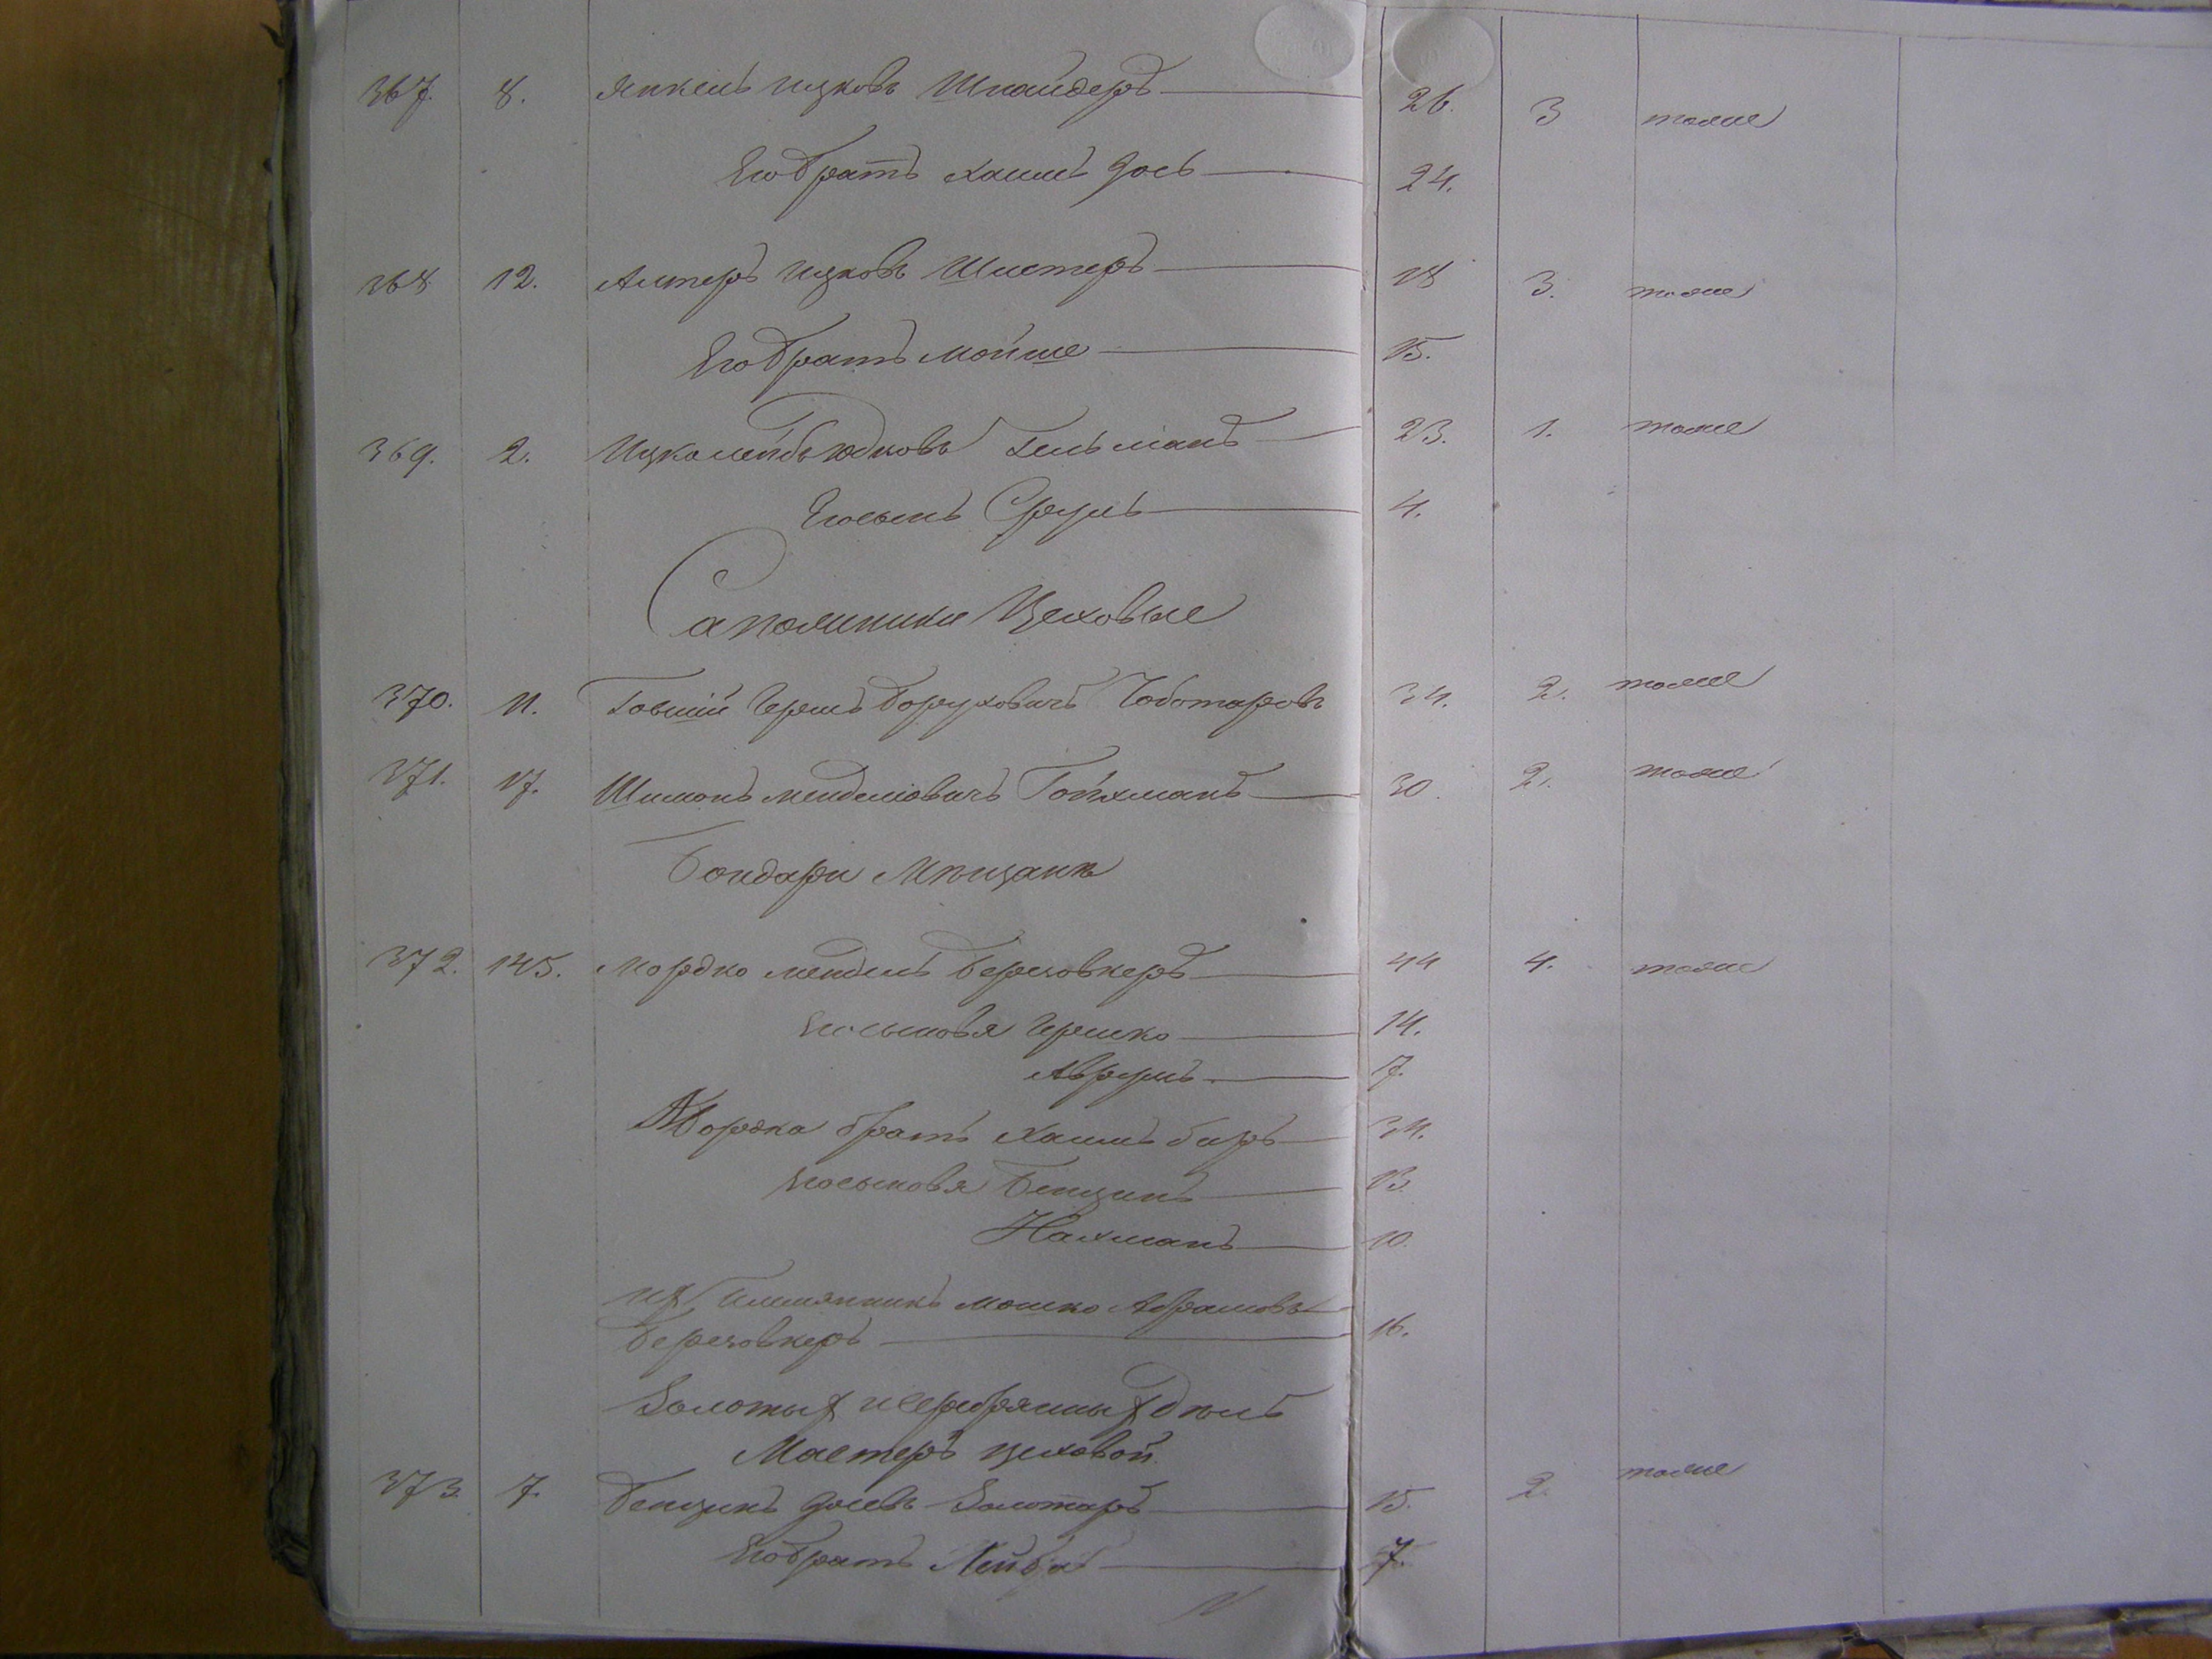 367. 8. Янкель Ицковъ Шнайдеръ 26. 3 тоже
Его братъ Хаимъ Дось 24.
368 12. Алтеръ Ицковъ Шистеръ 18 3. тоже
Его братъ Мойше 15.
369. 2. Ицко Лейбъ Юдковъ Гельманъ 23. 1. тоже
Его сынъ Сруль 4.
Сапожники Цеховые
370. 11. Говший Гершъ Боруховичъ Чоботаровъ 34. 2. тоже
371. 17. Шимонъ Менделіовичъ Гойхманъ 30. 2. тоже
Бондари Мѣщане
372. 145. Мордко Мендель Березовкеръ 44 4. тоже
Его сыновья Гершко 14.
Аврумъ 7.
Мордка братъ Хаимъ Беръ 34.
Его сыновья Бенционъ 13.
Нахманъ 10.
Их племянникъ Мошко Абрамовъ
Березовкеръ 16.
Золотых и Серебряных дѣлъ
Мастеръ цеховой.
373. 7. Бенционъ Золотаръ 15. 2. тоже
Его братъ Лейба 7.